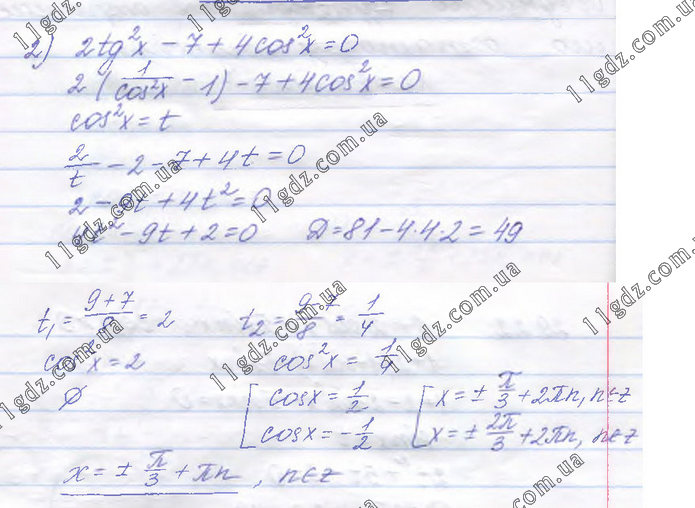 2) 2tg²x - 7 + 4cos²x = 0
2(1/cos²x - 1) - 7 + 4cos²x = 0
cos²x = t
2/t - 2 - 7 + 4t = 0
2 - 9t + 4t² = 0
4t² - 9t + 2 = 0 D = 81 - 4·4·2 = 49
t₁ = (9+7)/8 = 2 t₂ = (9-7)/8 = 1/4
cos²x = 2 cos²x = 1/4
∅ [cosx = 1/2 [x = ± π/3 + 2πn, n∈z
cosx = -1/2 x = ± 2π/3 + 2πn, n∈z
x = ± π/3 + πn, n∈z
11gdz.com.ua
11gdz.com.ua
11gdz.com.ua
11gdz.com.ua
11gdz.com.ua
11gdz.com.ua
11gdz.com.ua
11gdz.com.ua
11gdz.com.ua